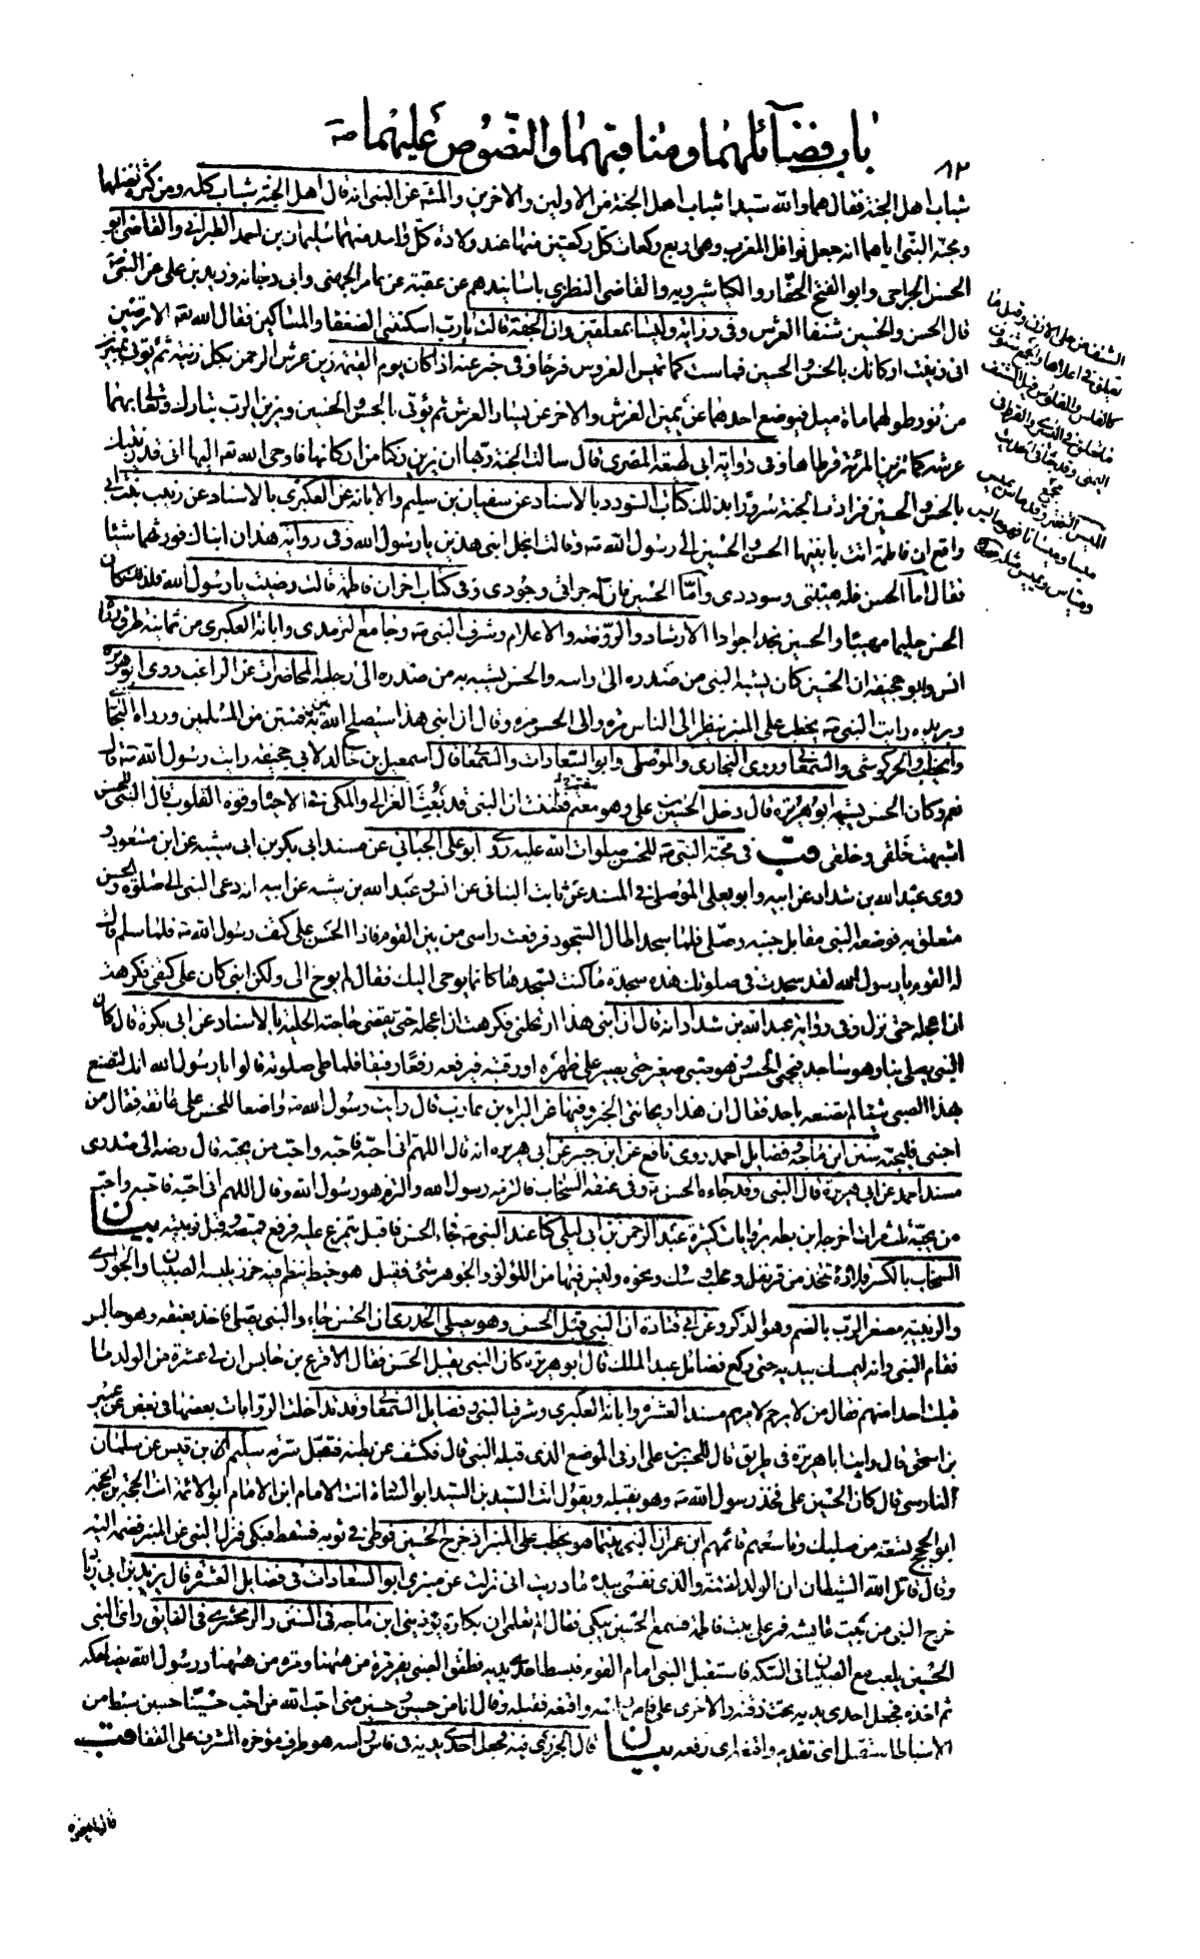 باب فضائلهما ومناقبهما والنصوص عليهما صـ
٨٢
شباب اهل الجنة فقال هما والله سيدا شباب اهل الجنة من الاولين والاخرين والمشـ عن النبي انه قال اهل الجنة شباب كلهم ومن كثرة فضلهما
ومحبة النبي اياهما انه جعل نوافل المغرب وهي اربع ركعات كل ركعتين منها عند ولادة كل واحد منهما سليمان بن احمد الطبراني والقاضي ابو
الحسن الجراحي وابو الفتح الحفار والكياشيرويه والقاضي النطنزي باسانيدهم عن عقبة عن عامر الجهني وابي دجانة وزيد بن علي عن النبي صـ
قال الحسن والحسين شنفا العرش وفي رواية وليسا بمعلقين وان الجنة قالت يا رب اسكنتني الضعفاء والمساكين فقال الله تعـ الا ترضين
اني زينت اركانك بالحسن والحسين فماست كما تميس العروس فرحا وفي خبر عنه اذا كان يوم القيمة زين عرش الرحمن بكل زينة ثم يؤتى بمنبرين
من نور طولهما مأة ميل فيوضع احدهما عن يمين العرش والاخر عن يسار العرش ثم يؤتى بالحسن والحسين ويزين الرب تبارك وتعالى بهما
عرشه كما تزين المرئة قرطاها وفي رواية ابي لهيعة المصري قال سالت الجنة ربها ان يزين ركنا من اركانها فاوحى الله تعـ اليها اني قد زينتك
بالحسن والحسين فزادت الجنة سرورا بذلك كتاب السؤدد بالاسناد عن سفيان بن سليم والابانة عن العكبري بالاسناد عن زينب بنت ابي
رافع ان فاطمة اتت بابنيها الحسن والحسين الى رسول الله صـ وقالت انحل ابني هذين يا رسول الله وفي رواية هذان ابناك فورثهما شيئا
فقال اما الحسن فله هيبتي وسوددي واما الحسين فان له جراتي وجودي وفي كتاب اخر ان فاطمة قالت رضيت يا رسول الله فلذلك كان
الحسن حليما مهيبا والحسين نجدا جوادا الارشاد والروضة والاعلام وشرف النبي صـ وجامع الترمذي وابانة العكبري من ثمانية طرق رواه
انس وابو جحيفة ان الحسين كان يشبه النبي من صدره الى راسه والحسن يشبه به من صدره الى رجليه المحاضرات عن الراغب روى ابو هريرة
وبريدة رايت النبي صـ يخطب على المنبر ينظر الى الناس مرة والى الحسن مرة وقال ان ابني هذا سيصلح الله به بين فئتين من المسلمين ورواه البخاري
والخطيب والخركوشي والسمعاني وروى البخاري والموصلي وابو السعادات والسمعاني قال اسمعيل بن خالد لابي جحيفة رايت رسول الله صـ قال
نعم وكان الحسن يشبهه ابو هريرة قال دخل الحسين بن علي وهو معتم فظننت ان النبي قد بعث الغزالي والمكي في الاحياء وقوة القلوب قال النبي للحسن
اشبهت خلقي وخلقي قب في محبة النبي صـ للحسن صلوات الله عليه ابو علي الجبائي عن مسند ابي بكر بن ابي شيبة عن ابن مسعود و
روى عبد الله بن شداد عن ابيه وابو يعلى الموصلي في المسند عن ثابت البناني عن انس وعبد الله بن شيبة عن ابيه انه دعى النبي الى صلوة والحسن
متعلق به فوضعه النبي مقابل جنبه وصلى فلما سجد اطال السجود فرفعت راسي من بين القوم فاذا الحسن على كتف رسول الله صـ فلما سلم قال
له القوم يا رسول الله لقد سجدت في صلوتك هذه سجدة ما كنت تسجدها كانما يوحى اليك فقال لم يوح الي ولكن ابني كان على كتفي فكرهت
ان اعجله حتى نزل وفي رواية عبد الله بن شداد انه قال ان ابني هذا ارتحلني فكرهت ان اعجله حتى يقضي حاجته الحلية بالاسناد عن ابي بكرة قال كان
النبي يصلي بنا وهو ساجد فيجئ الحسن وهو صبي صغير حتى يصير على ظهره او رقبته فيرفعه رفعا رفيقا فلما صلى صلوته قالوا يا رسول الله انك لتصنع
بهذا الصبي شيئا لم تصنعه باحد فقال ان هذا ريحانتي الخبر وفيها عن البراء بن عازب قال رايت رسول الله صـ واضعا للحسن على عاتقه فقال من
احبني فليحبه سنن ابن ماجة وفضايل احمد روى نافع عن ابن جبير عن ابي هريرة انه قال اللهم اني احبه فاحبه واحب من يحبه قال وضمه الى صدره
مسند احمد عن ابي هريرة قال النبي وقد جاءه الحسن وفي عنقه السخاب فالتزمه رسول الله والتزم هو رسول الله وقال اللهم اني احبه فاحبه واحب
من يحبه ثلث مرات اخرجه ابن بطة بروايات كثيرة عبد الرحمن بن ابي ليلى كنا عند النبي صـ فجاء الحسن فاقبل يتمرغ عليه فرفع قميصه وقبل زبيبته بيـان
السخاب بالكسر قلادة تتخذ من قرنفل ومحلب وسك ونحوه وليس فيها من اللؤلؤ والجوهر شئ وقيل هو خيط ينظم فيه خرز يلبسه الصبيان والجواري
والزبيبة مصغر الزب بالضم وهو الذكر وعن ابي قتادة ان النبي قبل الحسن وهو يصلي الخدري ان الحسن جاء والنبي يصلي فاخذ بعنقه وهو جالس
فقام النبي وانه ليمسك بيديه حتى ركع فضائل عبد الملك قال ابو هريرة كان النبي يقبل الحسن فقال الاقرع بن حابس ان لي عشرة من الولد ما
قبلت احدا منهم فقال من لا يرحم لا يرحم مسند العشرة وابانة العكبري وشرف النبي وفضايل السمعاني وقد تداخلت الروايات بعضها في بعض عن عمير
بن اسحق قال رايت ابا هريرة في طريق قال للحسن بن علي ارني الموضع الذي قبله النبي قال فكشف عن بطنه فقبل سرته سليم بن قيس عن سلمان
الفارسي قال كان الحسين على فخذ رسول الله صـ وهو يقبله ويقول انت السيد بن السيد ابو السادة انت الامام ابن الامام ابو الائمة انت الحجة بن الحجة
ابو الحجج تسعة من صلبك وتاسعهم قائمهم ابن عمر ان النبي بينما هو يخطب على المنبر اذ خرج الحسين فوطئ في ثوبه فسقط فبكى فنزل النبي عن المنبر فضمه اليه
وقال قاتل الله الشيطان ان الولد لفتنة والذي نفسي بيده ما دريت اني نزلت عن منبري ابو السعادات في فضايل العشرة قال يزيد بن ابي زياد
خرج النبي من بيت عايشة فمر على بيت فاطمة فسمع الحسين يبكي فقال الم تعلمي ان بكاءه يؤذيني ابن ماجة في السنن والزمخشري في الفايق راى النبي
الحسين يلعب مع الصبيان في السكة فاستقبل النبي امام القوم فبسط احدى يديه فطفق الصبي يفر مرة من ههنا ومرة من ههنا ورسول الله يضاحكه
ثم اخذه فجعل احدى يديه تحت ذقنه والاخرى على فاس راسه واقنعه فقبله وقال انا من حسين وحسين مني احب الله من احب حسينا حسين سبط من
الاسباط استقبل اي تقدم واقنعه اي رفعه بيـان قال الجزري فيه فجعل احدى يديه في فاس راسه هو طرف مؤخره المشرف على القفا قب
الشنف من حلي الاذن وقيل ما
يعلق في اعلاها والجمع شنوف
كالفلس والفلوس وقيل الشنف
ما يعلق في اليسرى والقرط في
اليمنى وقد جاء في الحديث
مجمع
الميس التبختر وقد ماس يميس
ميسا وميسانا فهو مياس
قال ابا هريرة